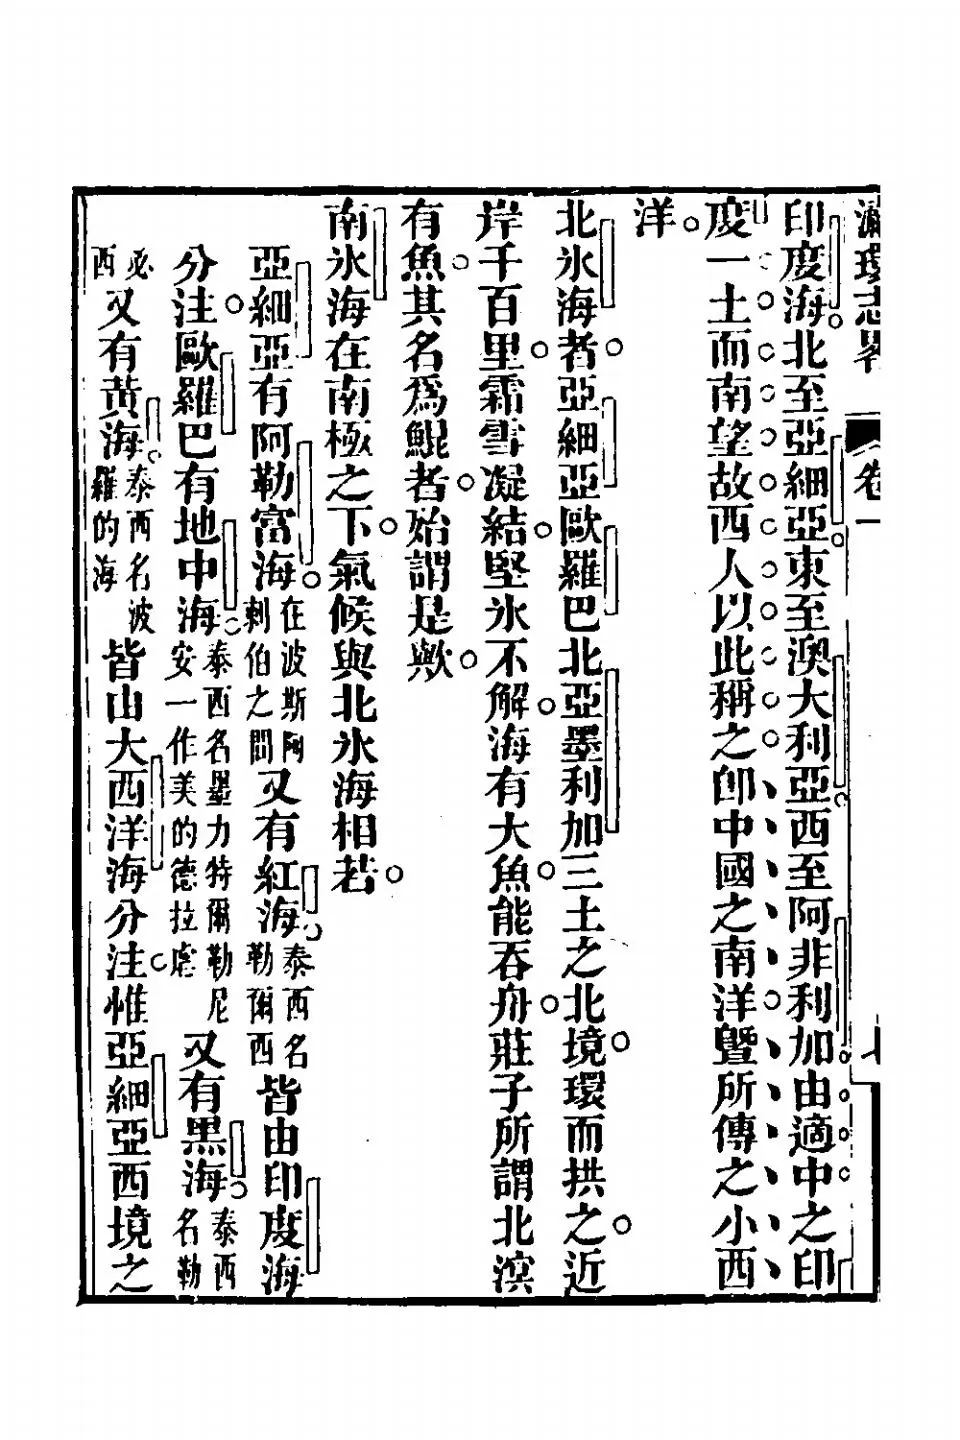 瀛環志畧
卷一
七
印度海北至亞細亞東至澳大利亞西至阿非利加由適中之印
度一土而南望故西人以此稱之卽中國之南洋曁所傳之小西
洋
北氷海者亞細亞歐羅巴北亞墨利加三土之北境環而拱之近
岸千百里霜雪凝結堅氷不解海有大魚能吞舟莊子所謂北溟
有魚其名爲鯤者始謂是歟
南氷海在南極之下氣候與北氷海相若
亞細亞有阿勒富海在波斯阿剌伯之間又有紅海泰西名勒爾西皆由印度海
分注歐羅巴有地中海泰西名墨力特爾勒尼安一作美的德拉虐又有黑海泰西名勒
必西又有黃海泰西名波羅的海皆由大西洋海分注惟亞細亞西境之